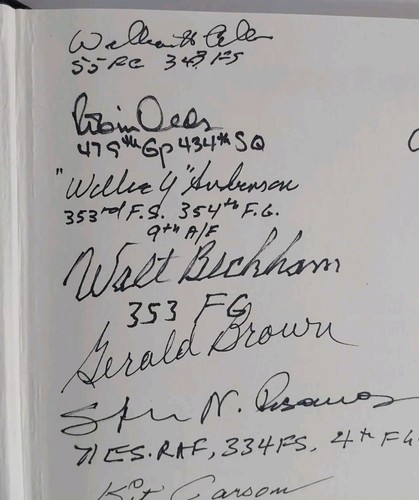 William H Allen
55 FG 343 FS
Robin Olds
479th Gp 434th SQ
"Willie Y" Anderson
353rd F.S. 354th F.G.
9th A/F
Walt Beckham
353 FG
Gerald Brown
Steve N. Pisanos
71 ES. RAF, 334 FS, 4th FG
Kit Carson